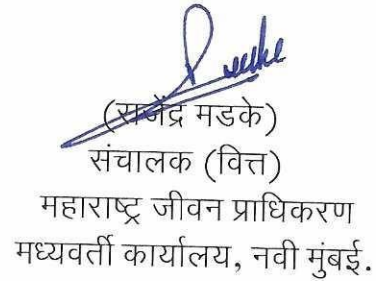 (राजेंद्र मडके)
संचालक (वित्त)
महाराष्ट्र जीवन प्राधिकरण
मध्यवर्ती कार्यालय, नवी मुंबई.